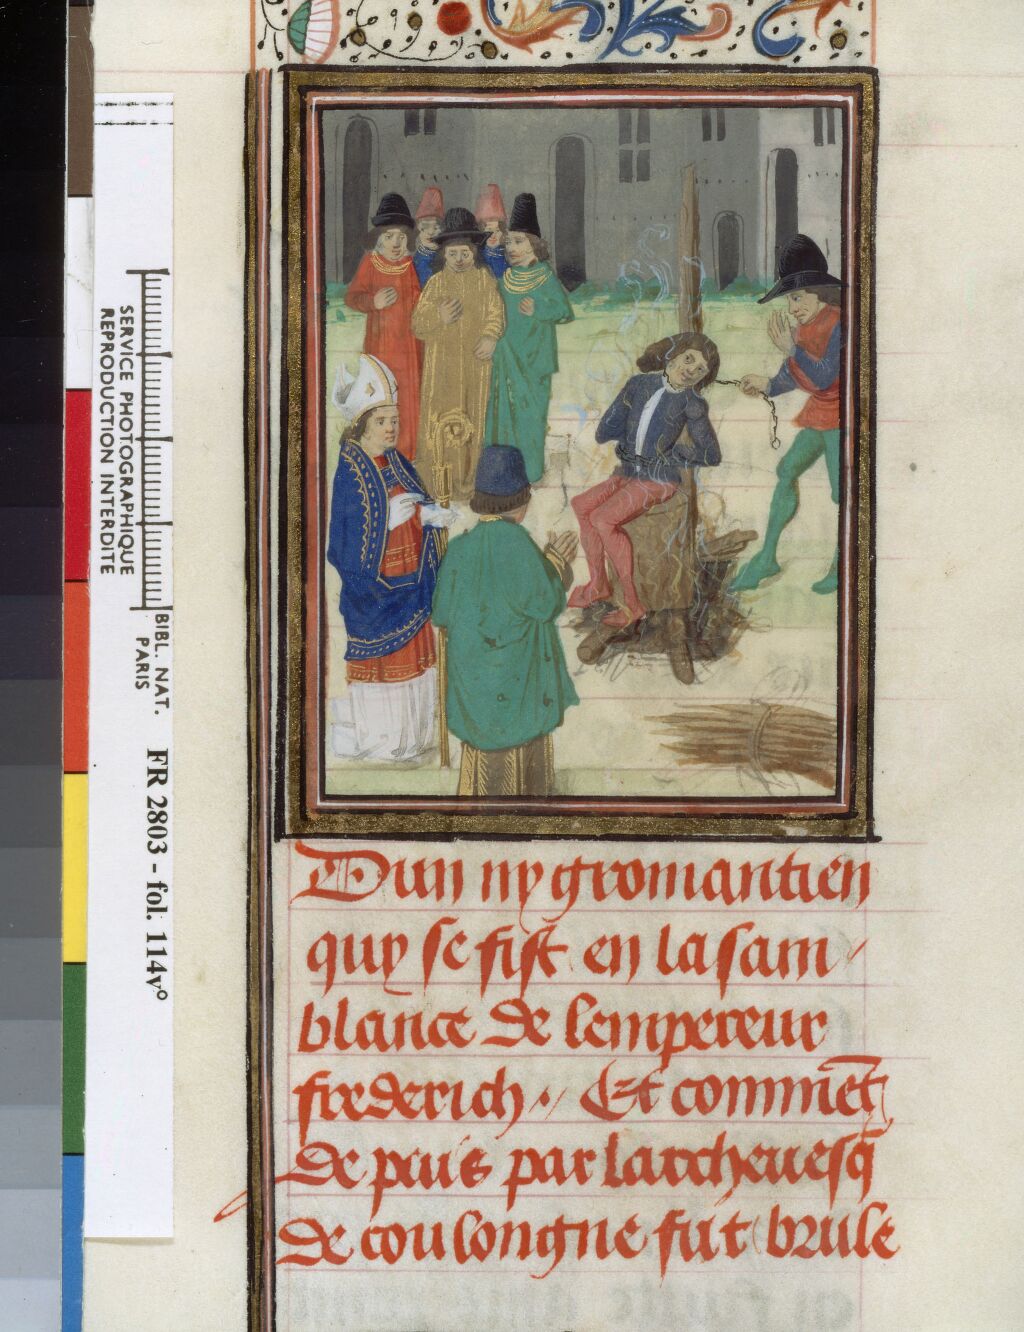 SERVICE PHOTOGRAPHIQUE
REPRODUCTION INTERDITE
BIBL. NAT.
PARIS
FR 2803 - fol. 114vº
Dun nygromantien
quy se fist en la sam /
blance de lempereur
frederich . Et commēt
depuis par larcheuesq̄
de coulongne fut brule